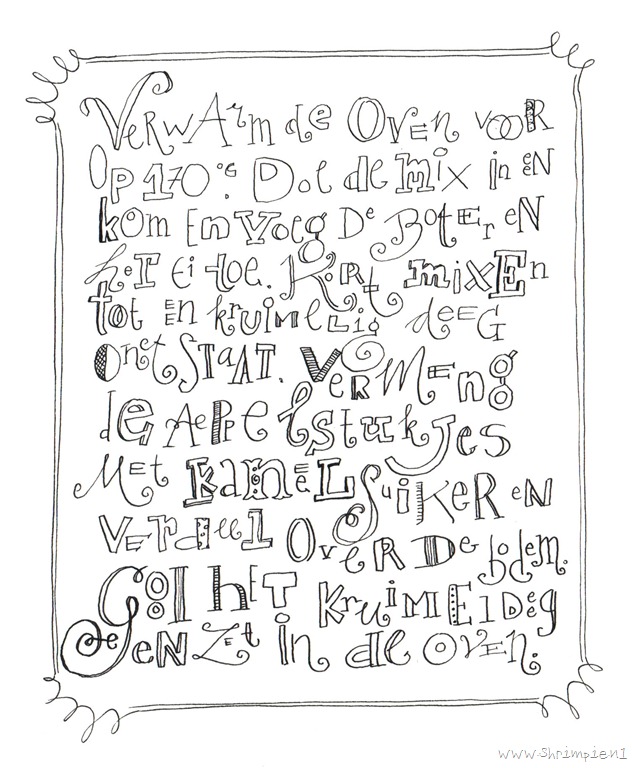 Verwarm de oven voor
op 170°C. Doe de mix in een
kom en voeg de boter en
het ei toe. Kort mixen
tot een kruimellig deeg
onstaat. Vermeng
de appelstukjes
met kaneelsuiker en
verdeel over de bodem.
Gooi het kruimeldeg
en zet in de oven.
www.shrimpien1